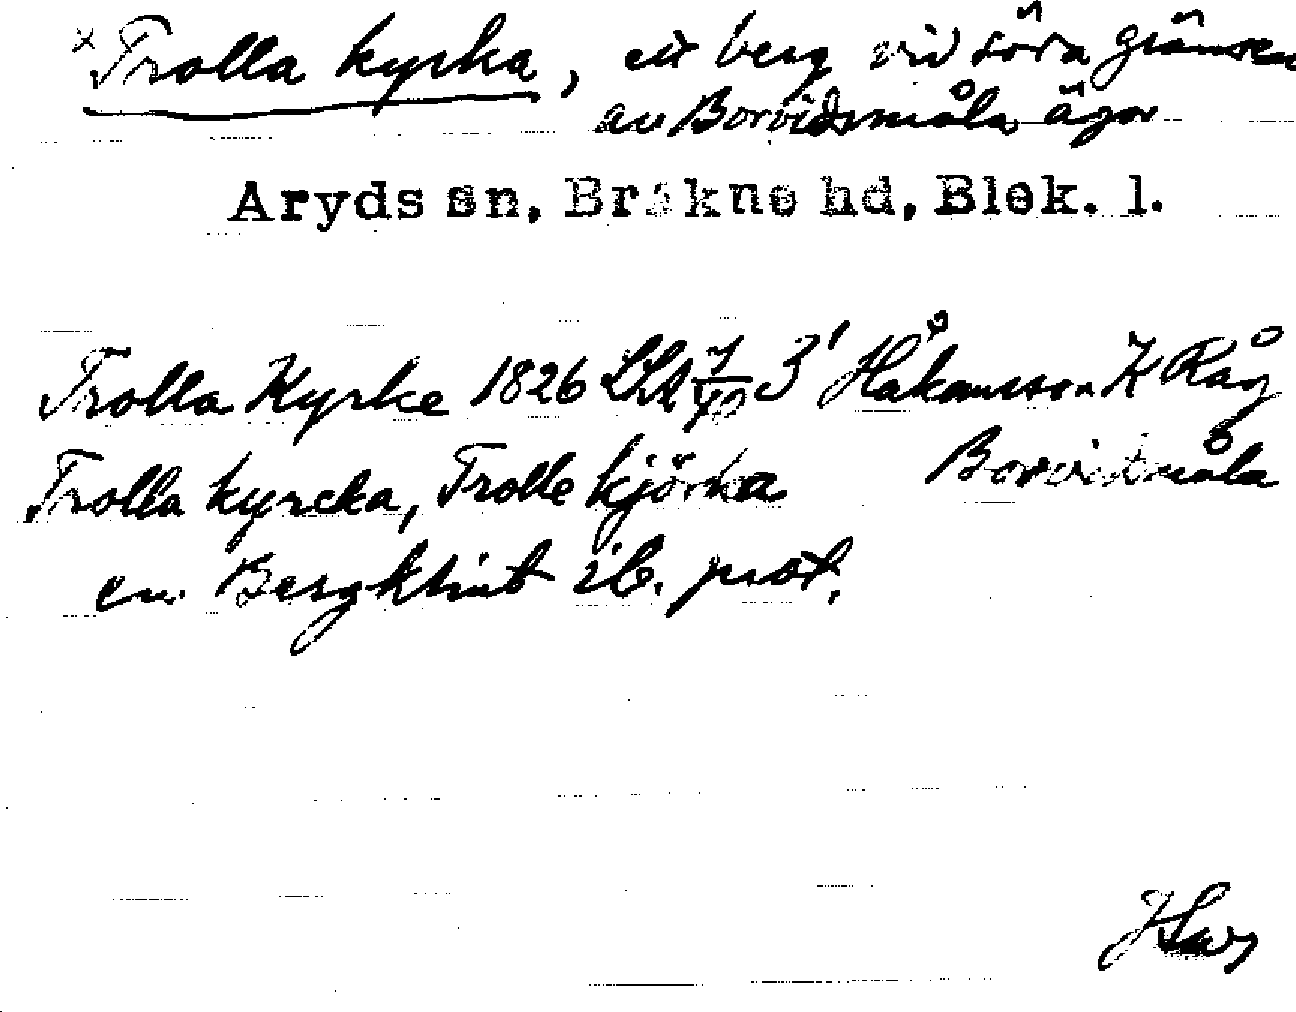 × Trolla kyrka, ett berg vid södra gränsen
av Borvidsmåla ägor
Aryds sn, Bräkne hd, Blek. l.
Trolla Kyrke 1826 LSA 3¹ Håkansson K Råg
Trolla kyrcka, Trolle kjörka Borvidsmåla
en Bergklint ib. prot.